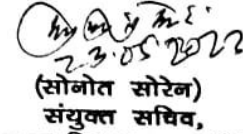 23.05.2022
(सोनोत सोरेन)
संयुक्त सचिव,